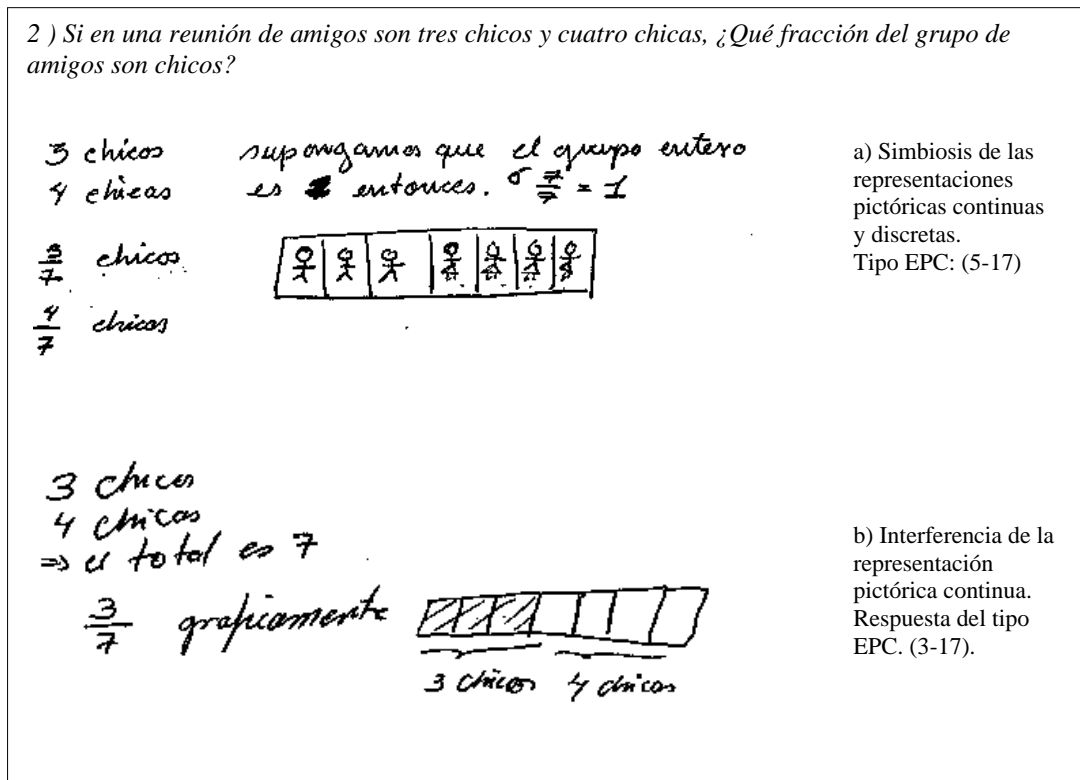 2 ) Si en una reunión de amigos son tres chicos y cuatro chicas, ¿Qué fracción del grupo de
amigos son chicos?
3 chicos
4 chicas
supongamos que el grupo entero
es entonces. o 7/7 = 1
3/7 chicos
4/7 chicas
a) Simbiosis de las
representaciones
pictóricas continuas
y discretas.
Tipo EPC: (5-17)
3 chicos
4 chicas
=> el total es 7
3/7 graficamente
3 chicos 4 chicas
b) Interferencia de la
representación
pictórica continua.
Respuesta del tipo
EPC. (3-17).